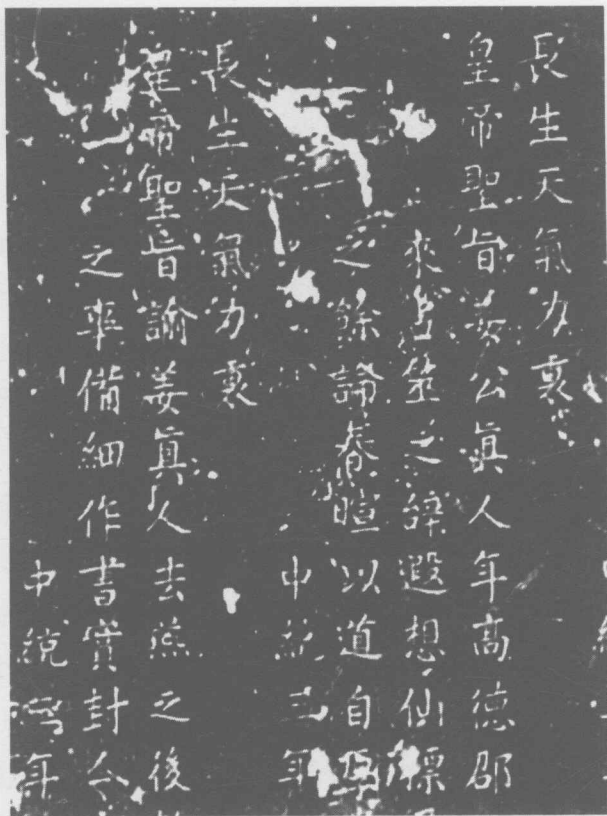 長生天氣力裏
皇帝聖旨姜公真人年高德邵
來占筮之辭遐想仙標
之餘誦春暄以道自
中統三年
長生天氣力裏
皇帝聖旨諭姜真人去燕之後
之事備細作書實封令
中統 年